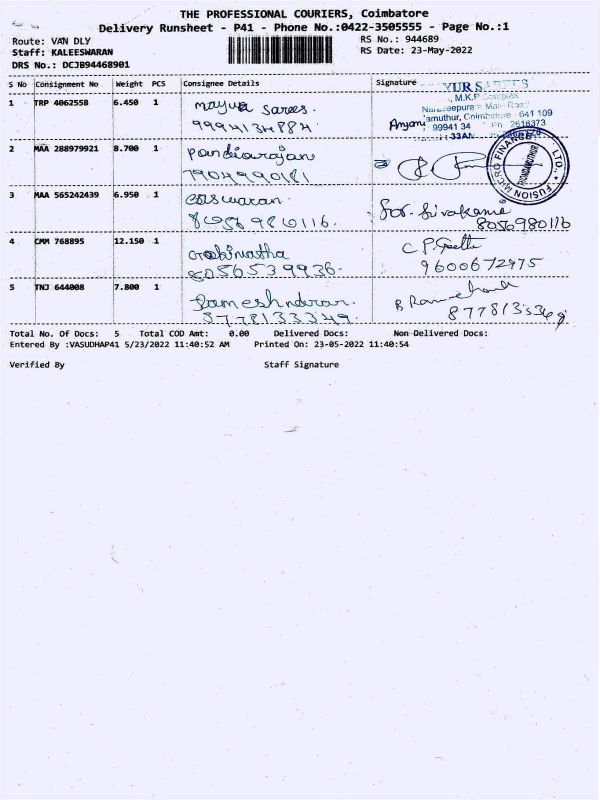 THE PROFESSIONAL COURIERS, Coimbatore
Delivery Runsheet - P41 - Phone No.:0422-3505555 - Page No.:1
Route: VAN DLY RS No.: 944689
Staff: KALEESWARAN RS Date: 23-May-2022
DRS No.: DCJB94468901
S No Consignment No Weight PCS Consignee Details Signature
1 TRP 4062558 6.450 1 mayura sarees.
9994134884
SAREES
M.K.P
641 109
Anjani 99941 34 Ph 2618373
33AN
2 MAA 288979921 8.700 1 pandiarajan
7904990181
FUSION MICRO FINANCE LTD.
3 MAA 565242439 6.950 1 eswaran.
8056980116. for. Sivakame
8056980116
4 CMM 768895 12.150 1
8056539936. C P. Geetha
9600672975
5 TNJ 644008 7.800 1 Rameshndran.
8778133349. B Ramechand
Total No. Of Docs: 5 Total COD Amt: 0.00 Delivered Docs: Non Delivered Docs:
Entered By :VASUDHAP41 5/23/2022 11:40:52 AM Printed On: 23-05-2022 11:40:54
Verified By Staff Signature